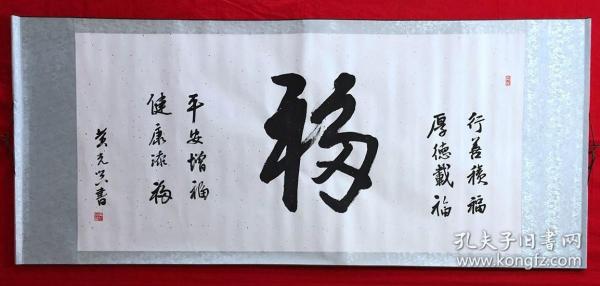 行善積福
厚德載福
福
平安增福
健康添福
黄書
孔夫子旧书网
www.kongfz.com